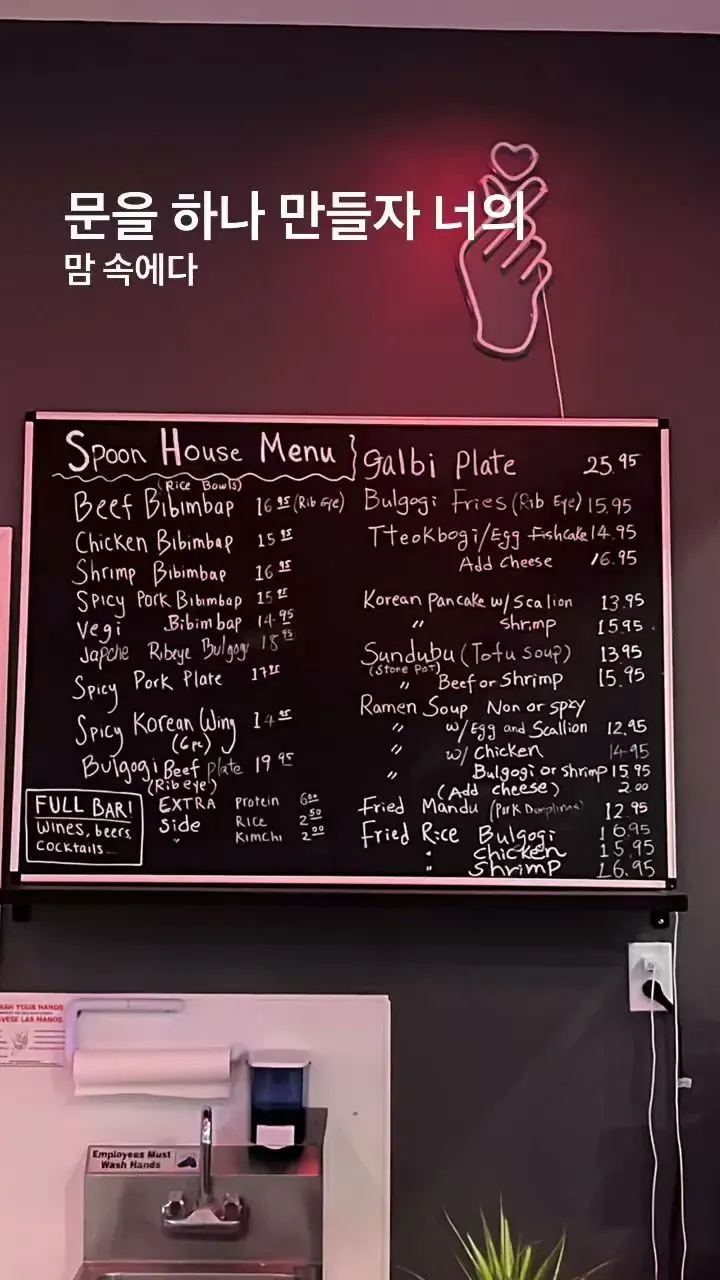 문을 하나 만들자 너의
맘 속에다
Spoon House Menu
(Rice Bowls)
Beef Bibimbap 16.95 (Rib Eye)
Chicken Bibimbap 15.95
Shrimp Bibimbap 16.95
Spicy Pork Bibimbap 15.95
Vegi Bibimbap 14.95
Japche Ribeye Bulgogi 18.95
Spicy Pork Plate 17.95
Spicy Korean Wing 14.95
(6pc)
Bulgogi Beef Plate 19.95
(Ribeye)
FULL BAR!
Wines, beers,
Cocktails...
EXTRA Protein 6.00
Side Rice 2.50
" Kimchi 2.00
Galbi Plate 25.95
Bulgogi Fries (Rib Eye) 15.95
Tteokbogi/Egg Fishcake 14.95
Add Cheese 16.95
Korean Pancake w/ Scalion 13.95
" Shrimp 15.95
Sundubu (Tofu Soup) 13.95
(Stone Pot)
" Beef or Shrimp 15.95
Ramen Soup Non or spzy
" w/ Egg and Scallion 12.95
" w/ Chicken 14.95
" Bulgogi or shrimp 15.95
(Add cheese) 2.00
Fried Mandu (Pork Dumplings) 12.95
Fried Rice Bulgogi 16.95
" Chicken 15.95
" Shrimp 16.95
ASH YOUR HANDS
VESE LAS MANOS
Employees Must
Wash Hands